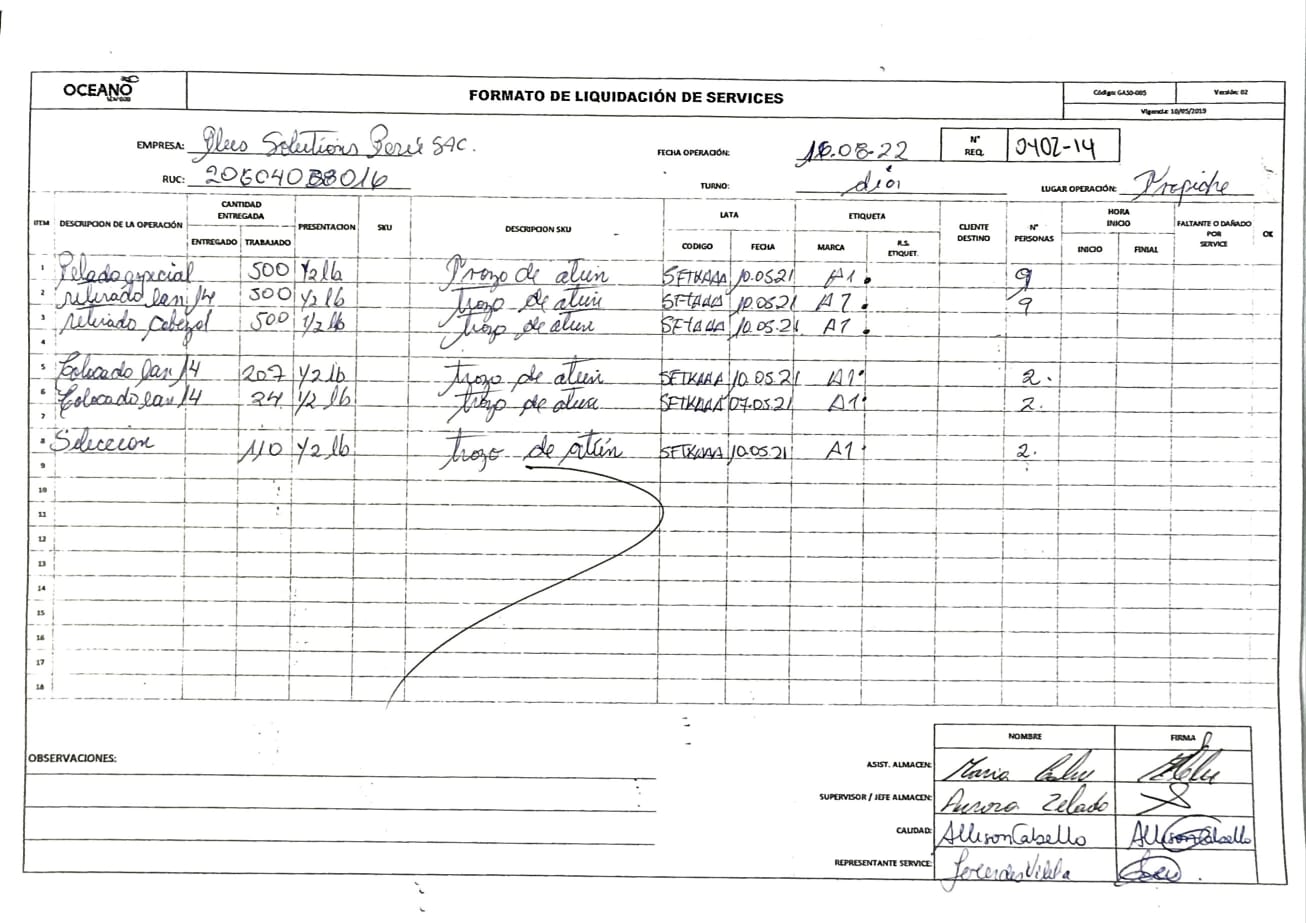 OCEANO
FORMATO DE LIQUIDACIÓN DE SERVICES
Código: GASO-005 Versión: 02
Vigencia: 10/05/2019
EMPRESA: Solutions Perú SAC.
FECHA OPERACIÓN: 16.08-22
N° REQ. 0402-14
RUC:
TURNO: día
LUGAR OPERACIÓN: Propiche
ITEM DESCRIPCION DE LA OPERACIÓN CANTIDAD ENTREGADA ENTREGADO TRABAJADO PRESENTACION SKU DESCRIPCION SKU LATA CODIGO FECHA ETIQUETA MARCA R.S. ETIQUET. CLIENTE DESTINO N° PERSONAS HORA INICIO INICIO FINIAL FALTANTE O DAÑADO POR SERVICE OK
1 Pelado especial 500 1/2 lb Trozo de atún 10.05.21 A1 9
2 retirado lan 1/4 500 1/2 lb trozo de atún 10.05.21 A1 9
3 retirado Cabezal 500 1/2 lb trozo de atún 10.05.21 A1
4
5 Colocado lan 1/4 207 1/2 lb trozo de atún SETKAAA 10.05.21 A1 2.
6 Colocado lan 1/4 24 1/2 lb trozo de atún SETKAAA 07.05.21 A1 2.
7
8 Selección 110 1/2 lb trozo de atún SETKAAA 10.05.21 A1 2.
9
10
11
12
13
14
15
16
17
18
OBSERVACIONES:
NOMBRE FIRMA
ASIST. ALMACEN: Maria
SUPERVISOR / JEFE ALMACEN: Aurora Zelado
CALIDAD: Allison Cabello Allison Cabello
REPRESENTANTE SERVICE: Lourdes Vilela